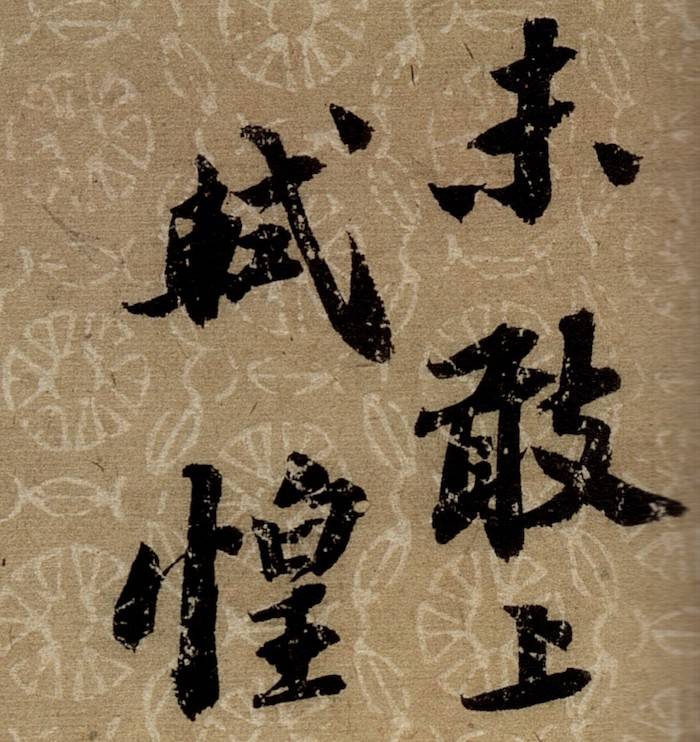 未敢上
軾惶